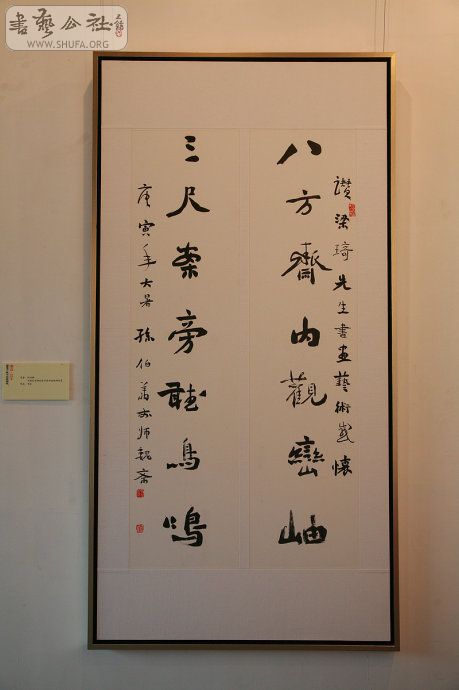 書藝公社
WWW.SHUFA.ORG
讚梁琦先生書画藝術感懷
八方齋内觀巒岫
三尺案旁聽鳥鳴
庚寅年大暑孫伯翔於師魏齋